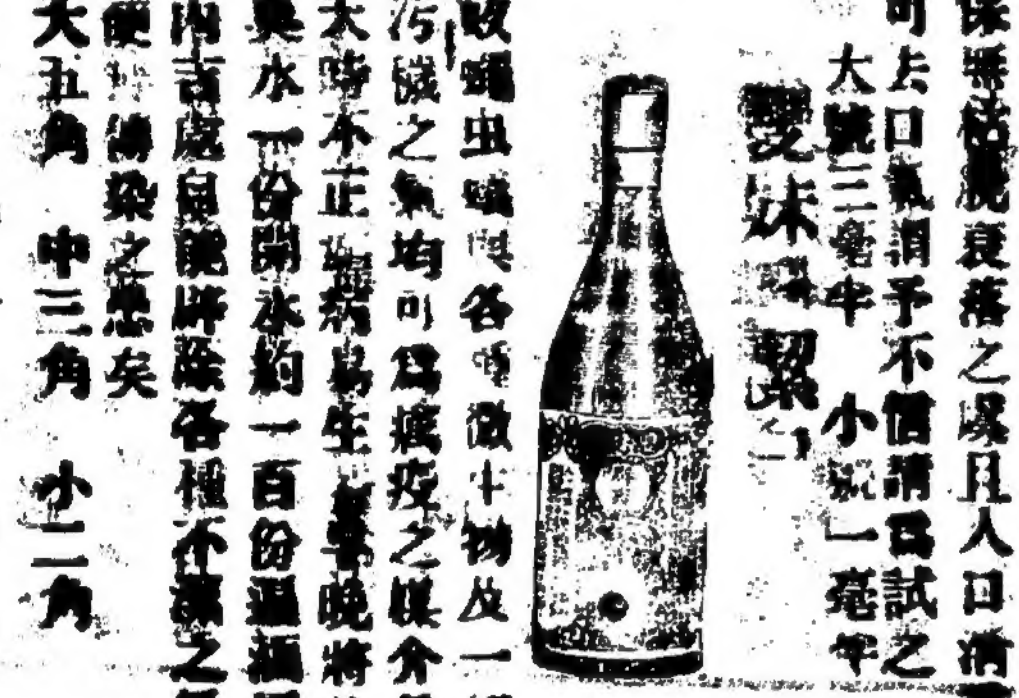 保無枯脫衰落之虞且人口清
可去口氣謂予不信請爲試之
大號三毫半 小號一毫半
愛妹 潔
蚊蠅虫 與各 微生物及一
污穢之氣均可爲瘟疫之媒介
太時不正 病易生 晚將
臭水一份開水約一百份遍洒
內吉處自能辟除各種不 之
便 傳染之患矣
大五角 中三角 小二角